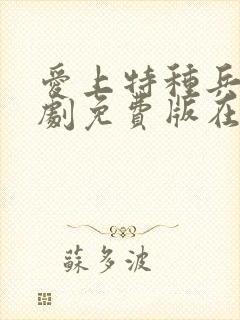 愛上特種兵
劇免費版在
蘇多波